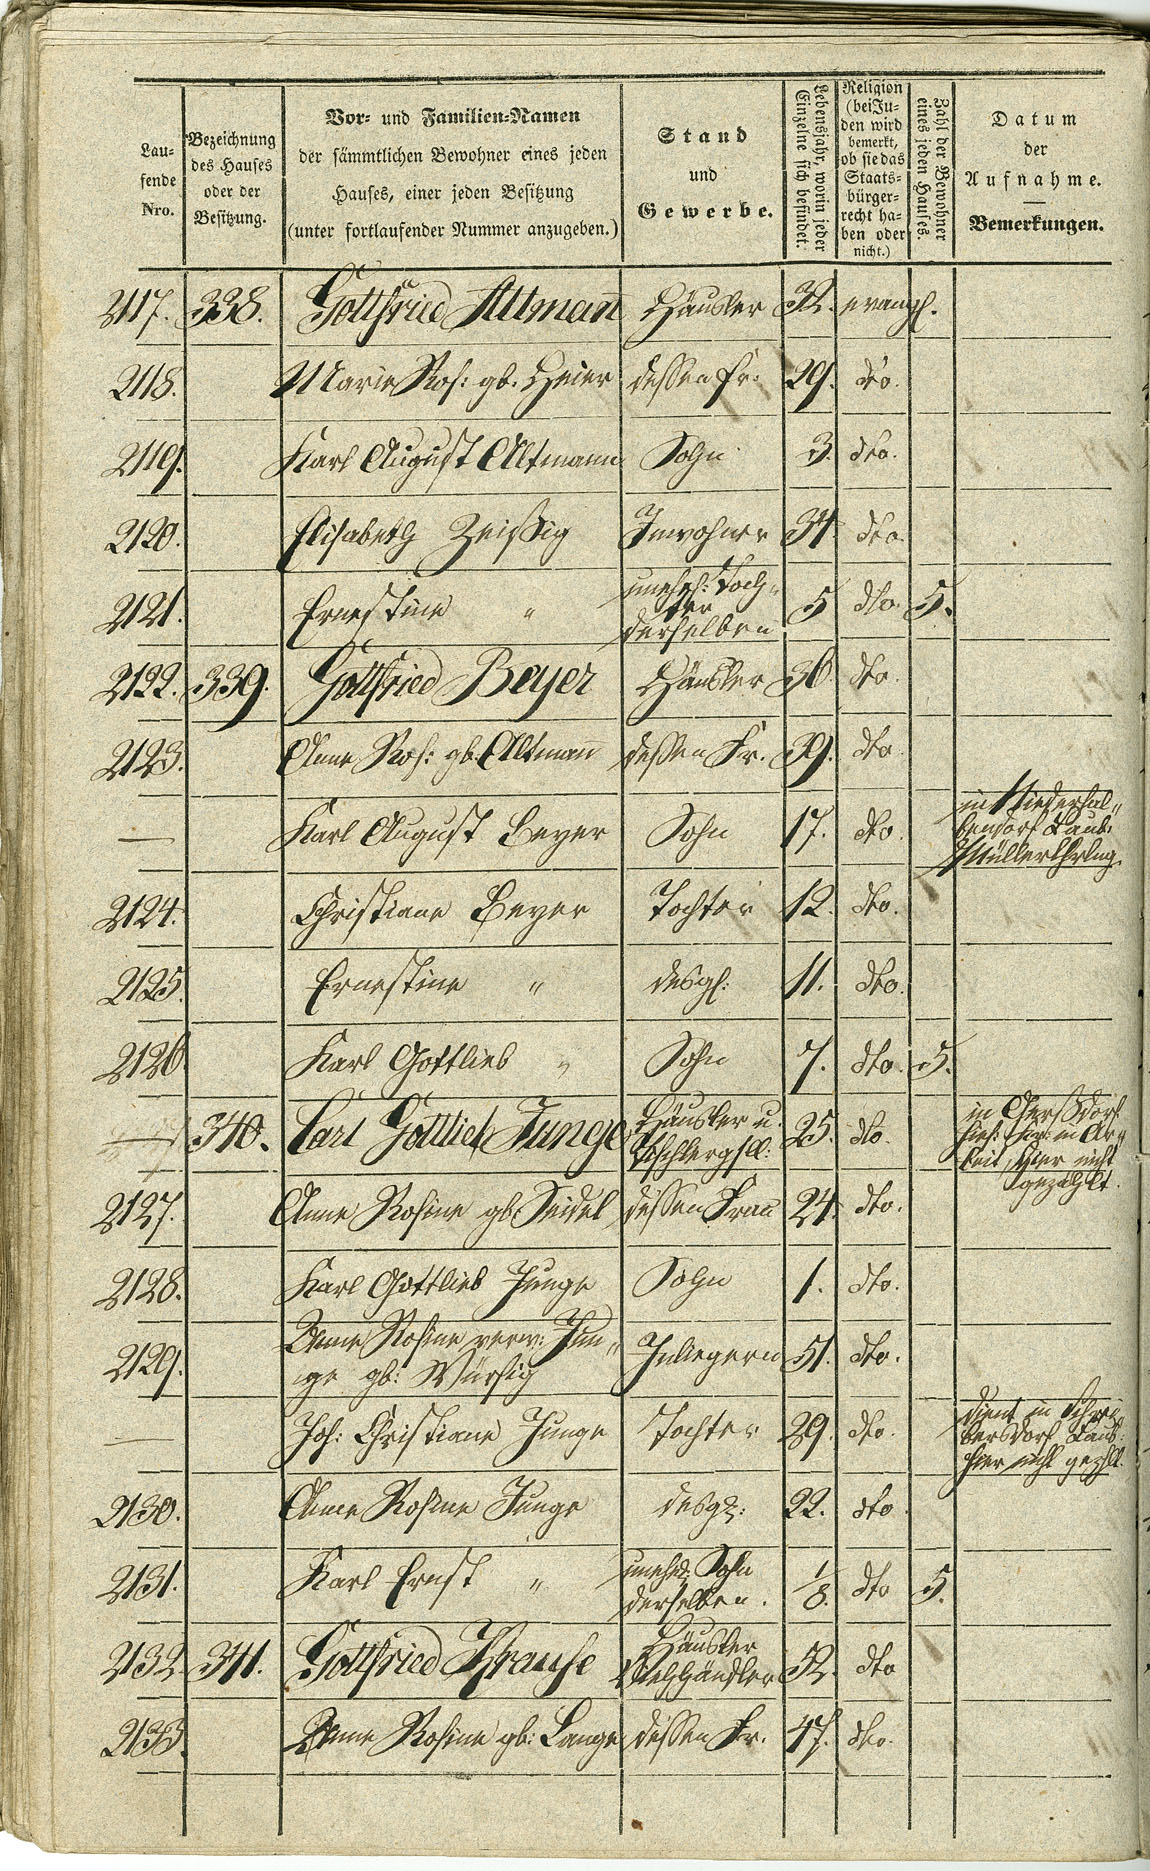 Lau-
fende
Nro.
Bezeichnung
des Hauses
oder der
Besitzung.
Vor- und Familien-Namen
der sämmtlichen Bewohner eines jeden
Hauses, einer jeden Besitzung
(unter fortlaufender Nummer anzugeben.)
Stand
und
Gewerbe.
Lebensjahr, worin jeder
Einzelne sich befindet:
Religion
(bei Ju-
den wird
bemerkt,
ob sie das
Staats-
bürger-
recht ha-
ben oder
nicht.)
Zahl der Bewohner
eines jeden Hauses.
Datum
der
Aufnahme.
Bemerkungen.
2117. 338. Gottfried Altman̅ Häusler 32. evangl.
2118. Marie Ros: gb. Heier dessen Fr: 29. dto.
2119. Karl August Altmann Sohn 3. dto.
2120. Elisabeth Zeißig Inwohner 34 dto.
2121. Ernestine " unehel: Toch-
ter
derselben 5 dto. 5.
2122. 339. Gottfried Beyer Häusler 36 dto.
2123. Anne Ros: gb. Altman̅ dessen Fr. 39. dto
— Karl August Beyer Sohn 17. dto. in Niederhal-
bendorf Laub.
Müllerlhrlng.
2124. Christiane Beyer Tochter 12. dto.
2125. Ernestine " desgl: 11. dto.
2126. Karl Gottlieb " Sohn 7. dto. 5.
— 340. Carl Gottlieb Junge Häusler u.
Tischlergsll: 25. dto. in Gersdorf
in Ar-
beit, hier nicht
gezählt.
2127. Anne Rosine gb. Seidel dessen Frau 24. dto.
2128. Karl Gottlieb Junge Sohn 1. dto.
2129. Anne Rosine verw: Jun-
ge gb: Würfig Inliegern 51. dto.
— Joh: Christiane Junge Tochter 29. dto. dient in
Laub:
hier nicht gezhlt.
2130. Anne Rosine Junge desgl: 22. dto
2131. Karl Ernst " unehel. Sohn
derselben. 1/8. dto 5.
2132. 341. Gottfried Krause Häusler
Viehhändler 52. dto
2133. Anne Rosine gb: Lange dessen Fr. 47. dto.